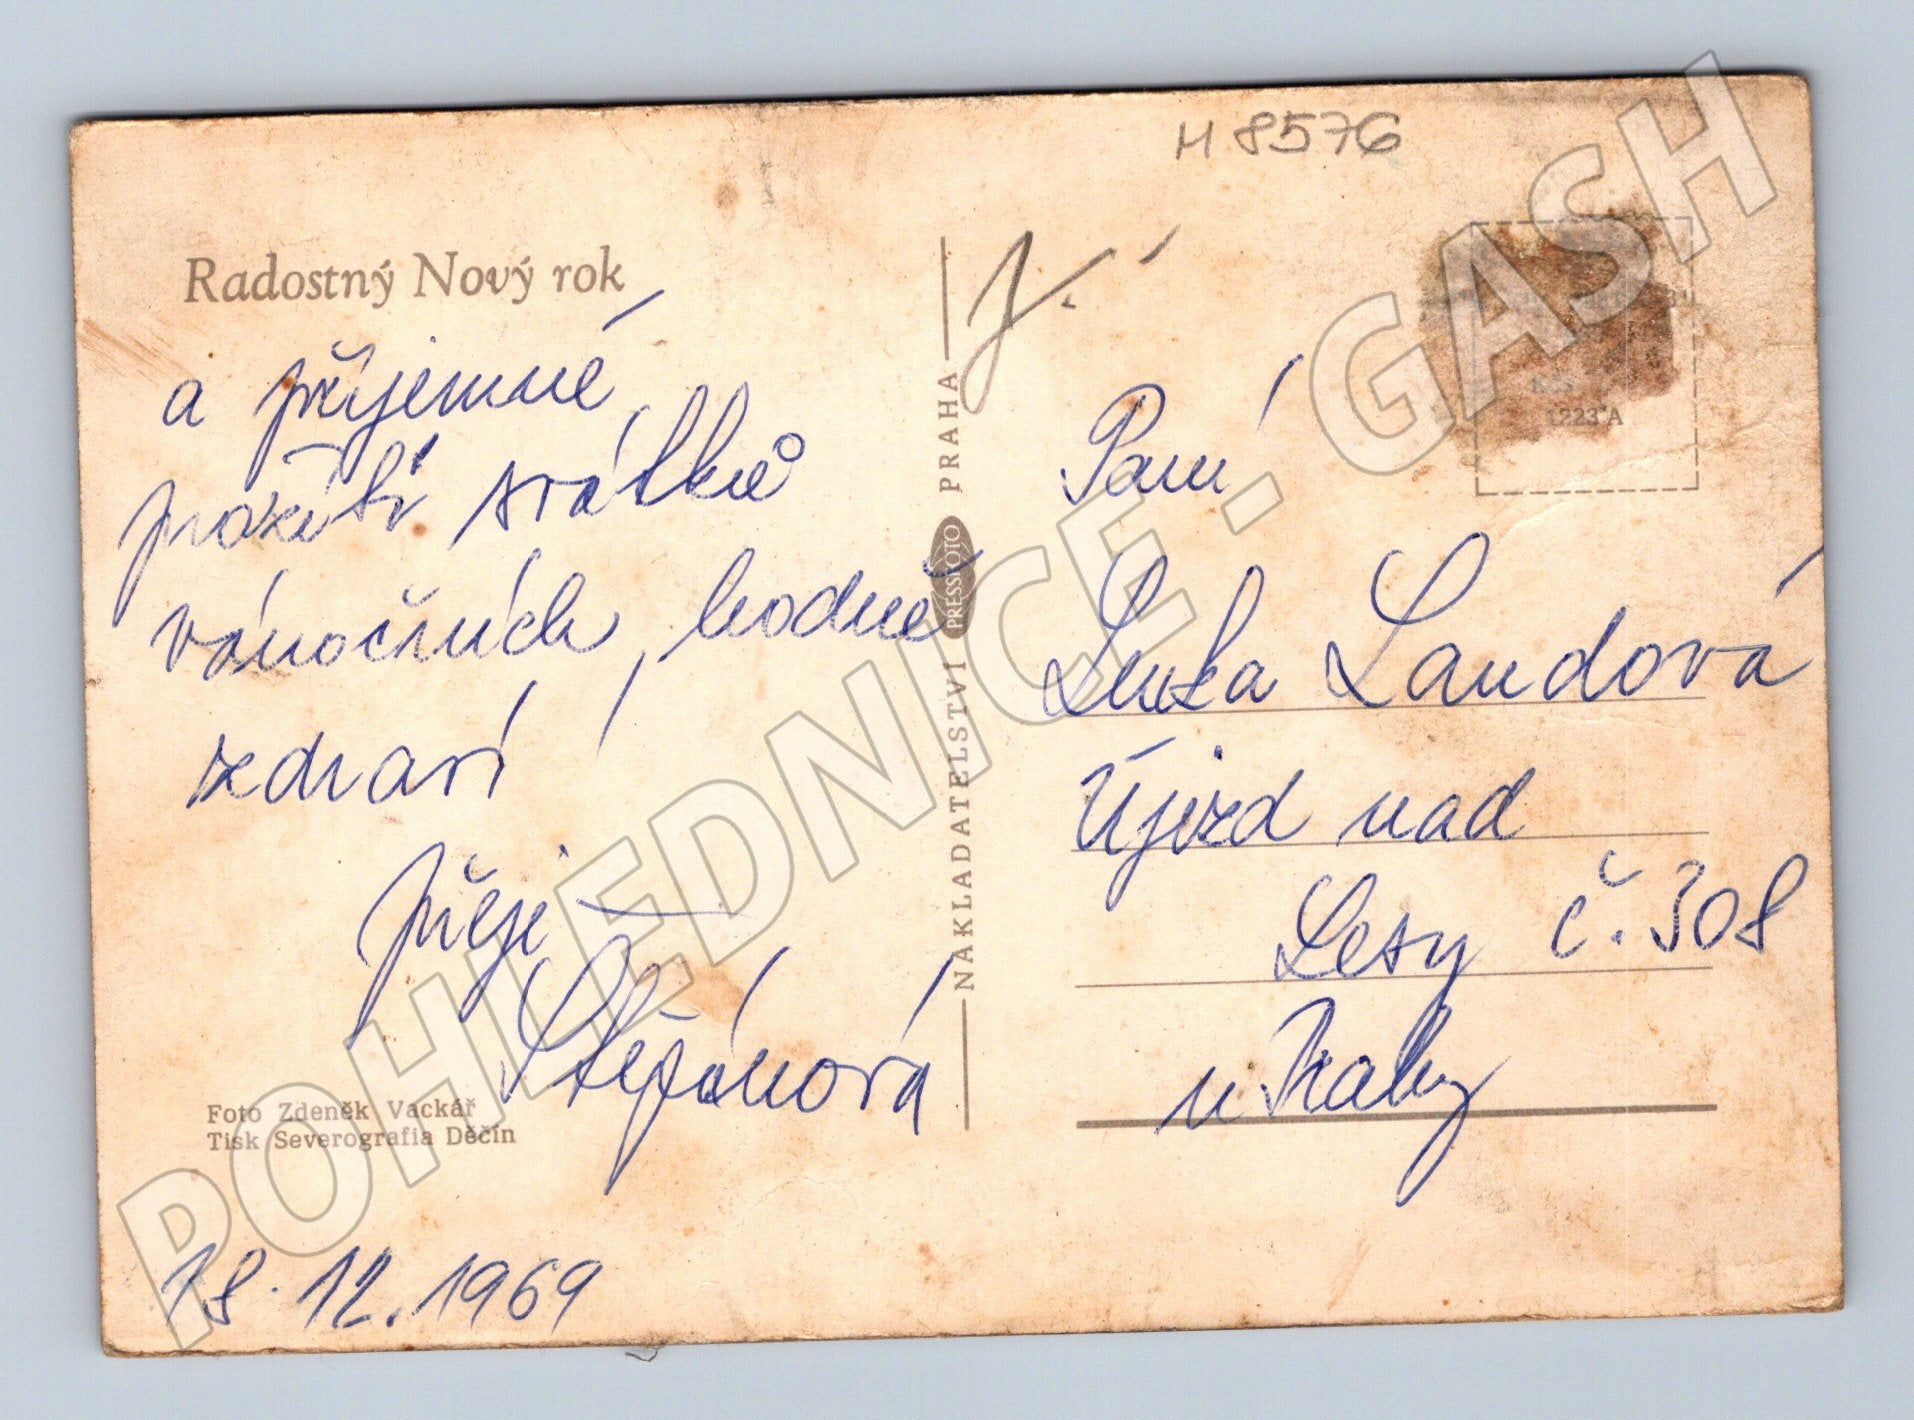 H 8576
Radostný Nový rok
a příjemné
prožití svátků
vánočních, hodně
zdraví
přeje
Štěpánová
Foto Zdeněk Vackář
Tisk Severografia Děčín
18. 12. 1969
NAKLADATELSTVÍ PRESSFOTO PRAHA
1223 A
Paní
Lenka Landová
Újezd nad
Lesy č. 308
u Prahy
POHLEDNICE - GASH